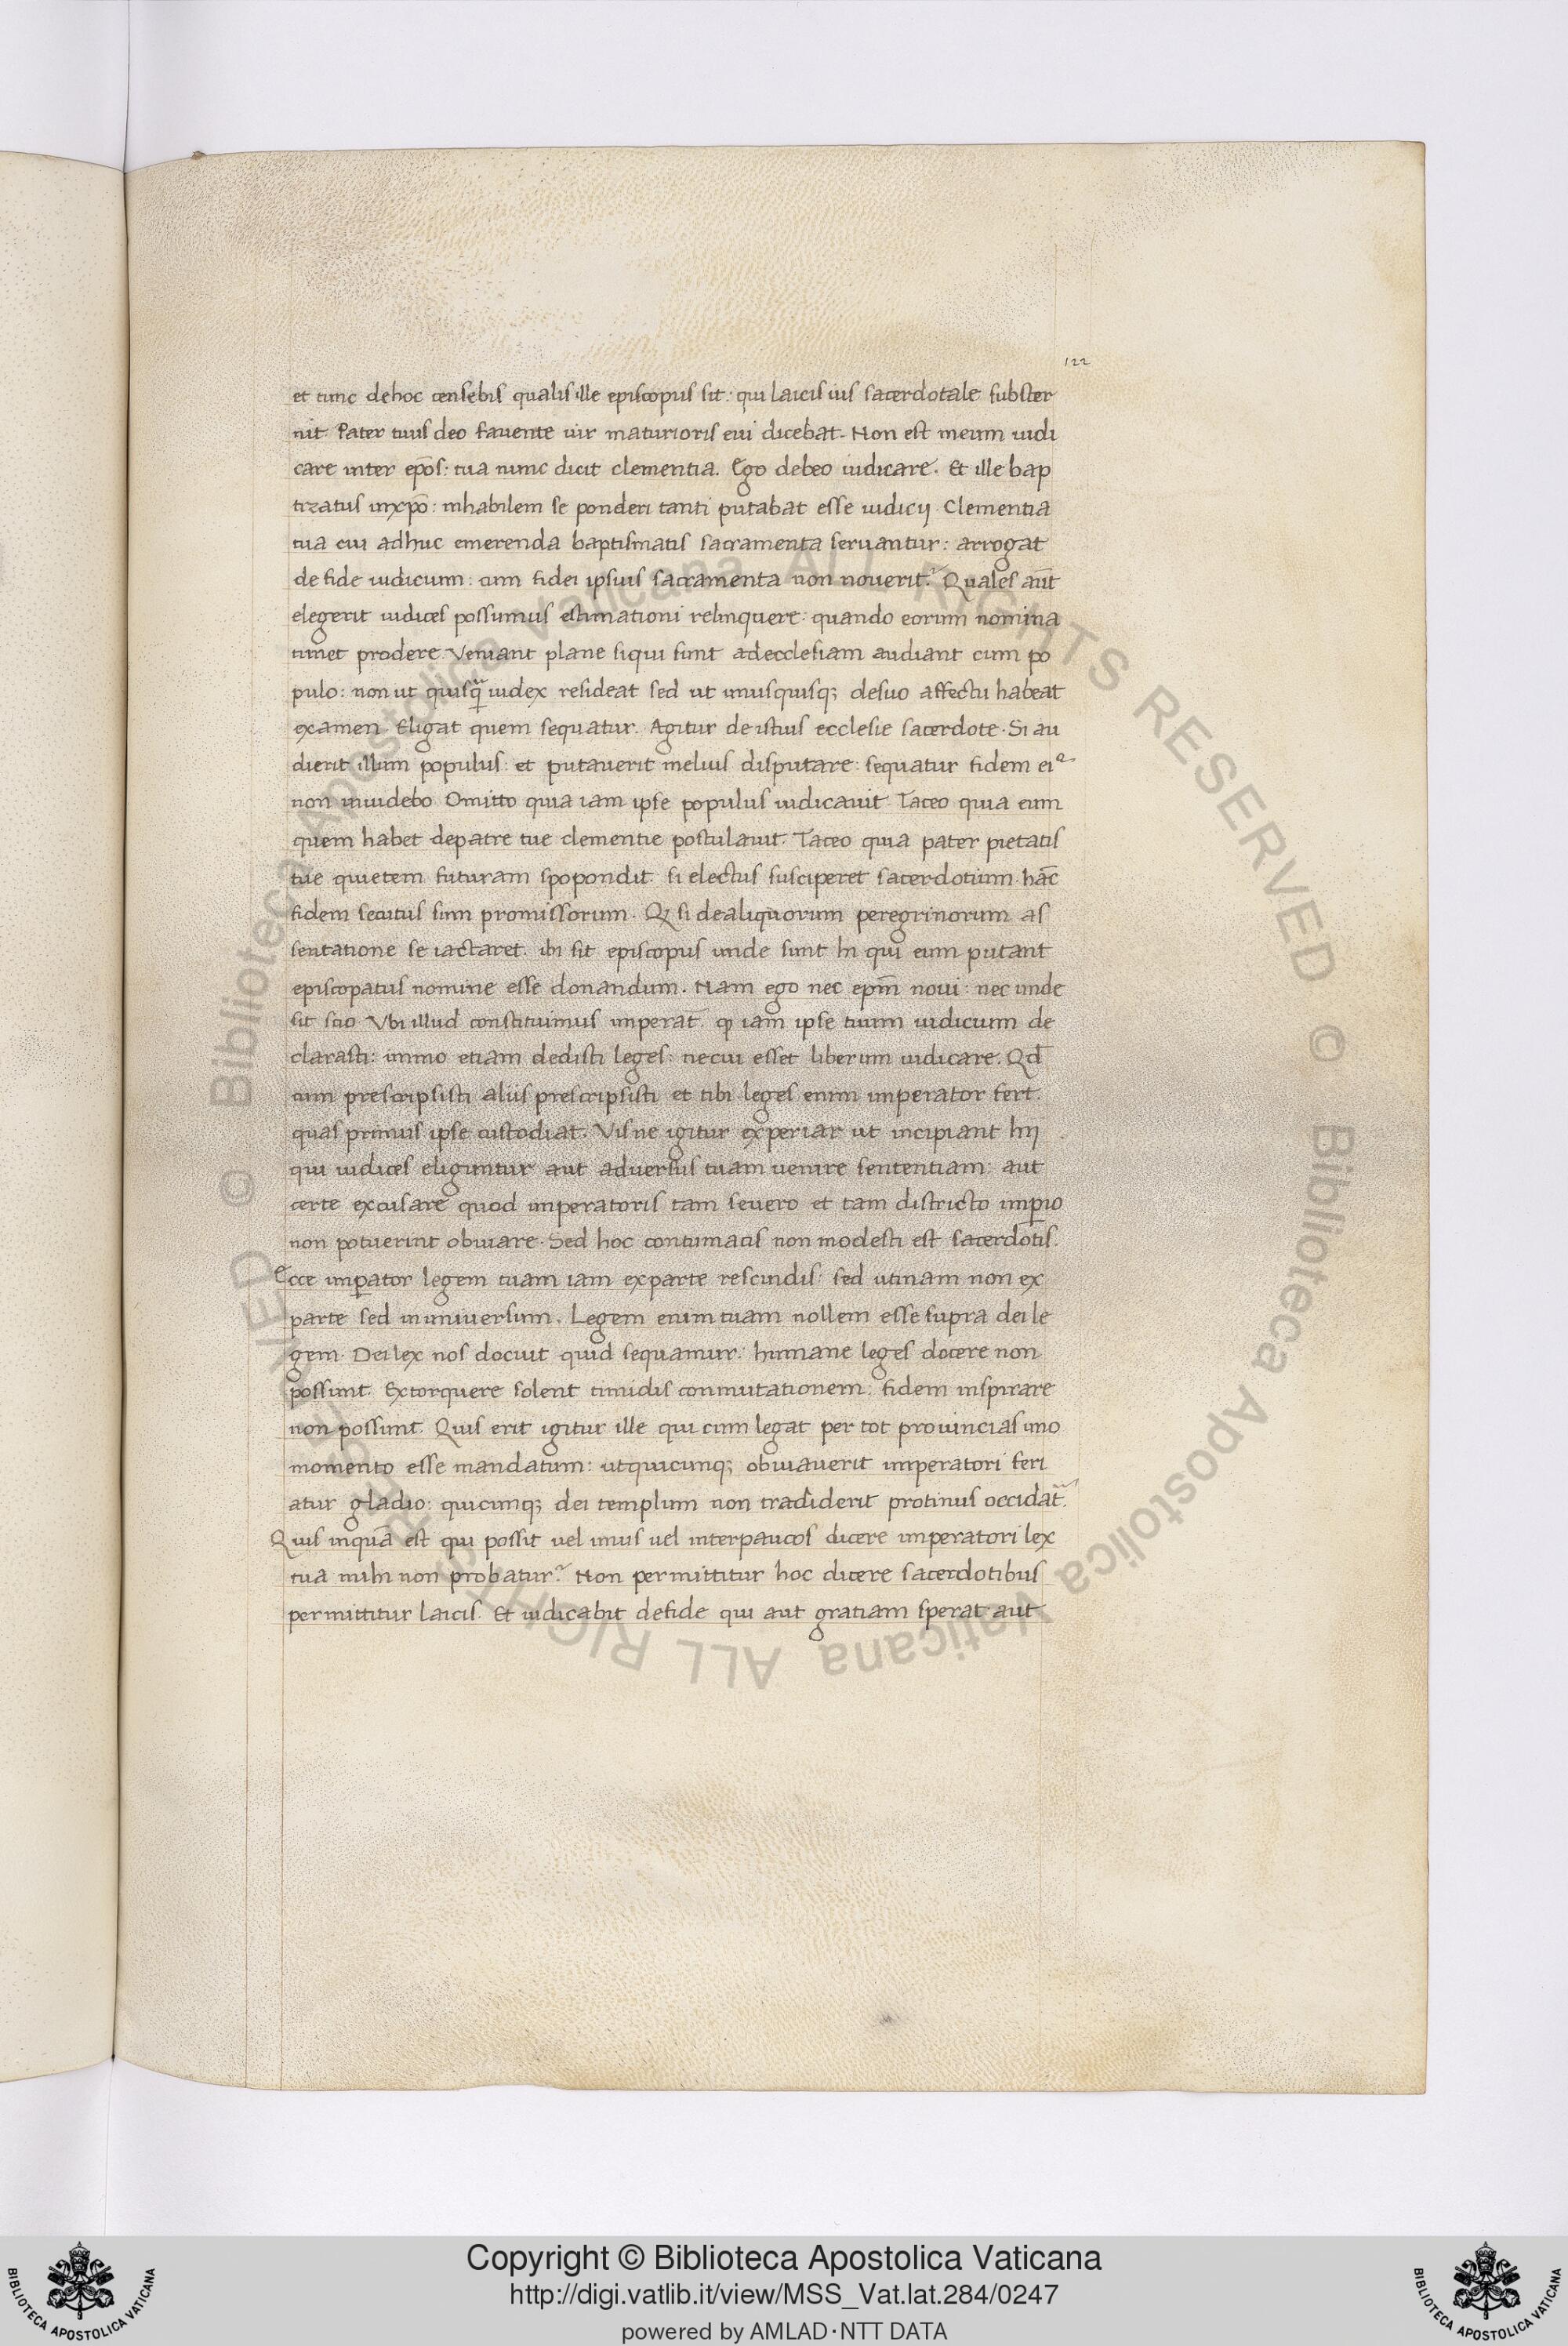 122
et tunc dehoc censebis qualis ille episcopus sit: qui laicis ius sacerdotale subster
nit. Pater tuus deo favente uir maturioris eui dicebat. Non est meum iudi
care inter ep̄os: tua nunc dicit clementia. Ego debeo iudicare. Et ille bap
tizatus inxp̄o: inhabilem se ponderi tanti putabat esse iudicij. Clementia
tua cui adhuc emerenda baptismatis sacramenta seruantur: arrogat
de fide iudicium: cum fidei ipsius sacramenta non nouerit? Quales aut̄
elegerit iudices possumus estimationi relinquere: quando eorum nomina
timet prodere. Veniant plane siqui sunt adecclesiam audiant cum po
pulo: non ut quisq̄ iudex resideat sed ut unusquisq; desuo affectu habeat
examen. Eligat quem sequatur. Agitur de istius ecclesie sacerdote. Si au
dierit illum populus: et putauerit melius disputare: sequatur fidem ei9
non inuidebo. Omitto quia iam ipse populus iudicauit. Taceo quia eum
quem habet depatre tue clementie postulauit. Taceo quia pater pietatis
tue quietem futuram spopondit. si electus susciperet sacerdotium. hāc
fidem secutus sum promissorum. Q si dealiquorum peregrinorum as
sentatione se iactaret. ibi sit episcopus unde sunt hi qui eum putant
episcopatus nomine esse donandum. Nam ego nec ep̄m noui: nec unde
sit scio. Vbi illud constituimus imperat̄. q iam ipse tuum iudicium de
clarasti: immo etiam dedisti leges: necui esset liberum iudicare. Qd̄
cum prescripsisti aliis prescripsisti et tibi. leges enim imperator fert.
quas primus ipse custodiat. Visne igitur experiar ut incipiant hij
qui iudices eliguntur aut aduersus tuam uenire sententiam: aut
certe excusare quod imperatoris tam seuero et tam districto imp̱io
non potuerint obuiare. Sed hoc contumacis non modesti est sacerdotis.
Ecce imp̱ator legem tuam iam exparte rescindis: sed utinam non ex
parte sed inuniuersum. Legem enim tuam nollem esse supra dei le
gem. Dei lex nos docuit quid sequamur: humane leges docere non
possunt. Extorquere solent timidis conmutationem: fidem inspirare
non possunt. Quis erit igitur ille qui cum legat per tot prouincias uno
momento esse mandatum: utquicunq; obuiauerit imperatori feri
atur gladio: quicunq; dei templum non tradiderit protinus occidat᷑.
Quis inquā est qui possit uel unus uel interpaucos dicere imperatori lex
tua mihi non probatur? Non permittitur hoc dicere sacerdotibus
permittitur laicis. Et iudicabit defide qui aut gratiam sperat aut
Copyright © Biblioteca Apostolica Vaticana
http://digi.vatlib.it/view/MSS_Vat.lat.284/0247
powered by AMLAD·NTT DATA
BIBLIOTECA APOSTOLICA VATICANA
BIBLIOTECA APOSTOLICA VATICANA
© Biblioteca Apostolica Vaticana ALL RIGHTS RESERVED © Biblioteca Apostolica Vaticana ALL RIGHTS RESERVED